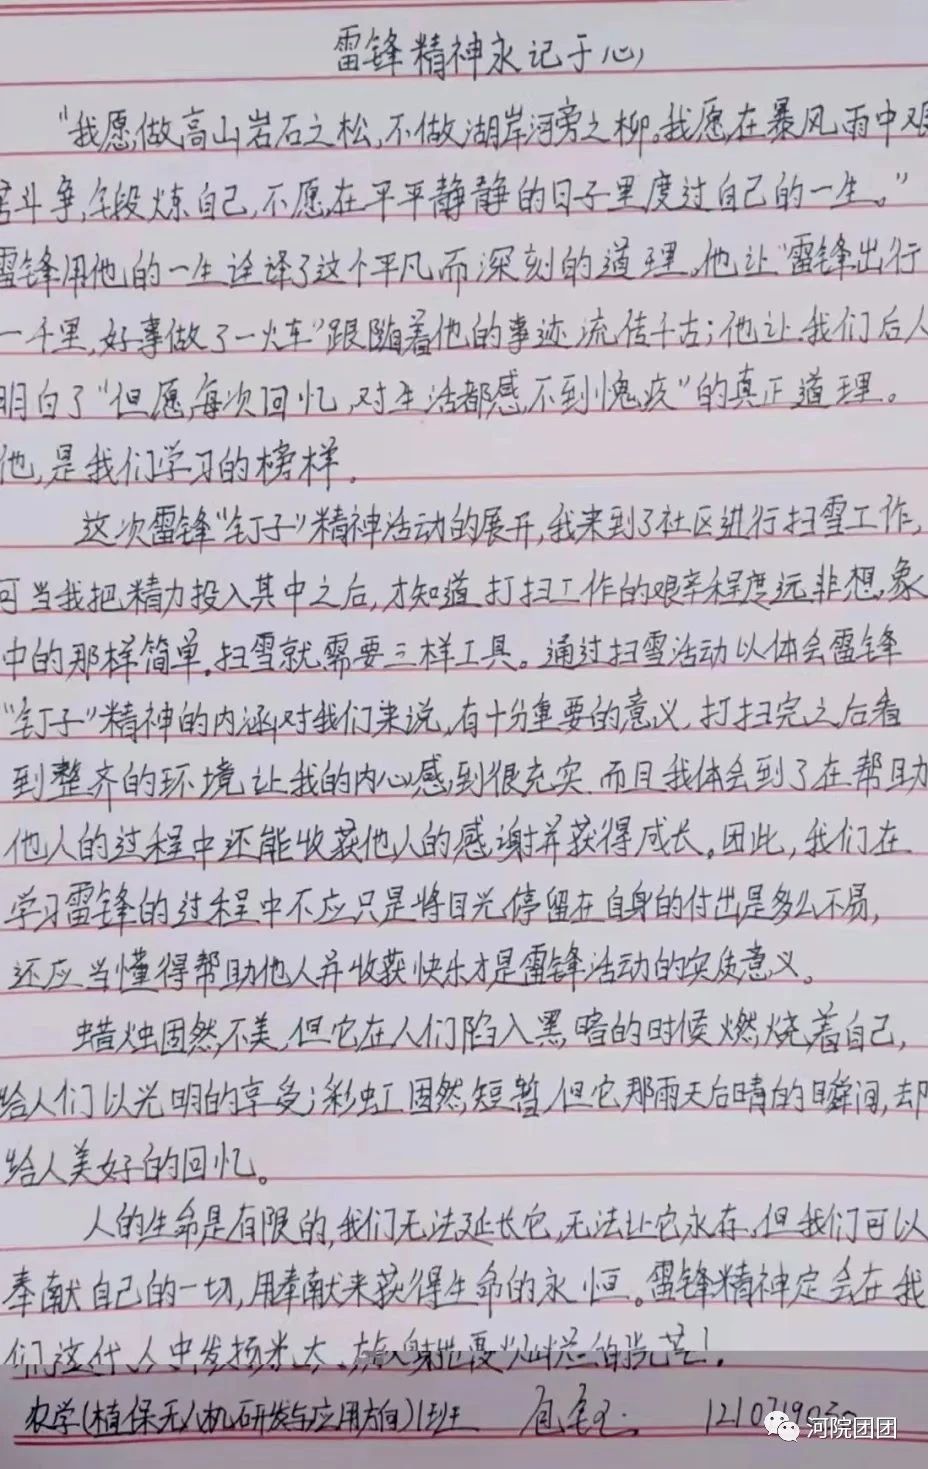 雷锋精神永记于心
“我愿做高山岩石之松,不做湖岸河旁之柳。我愿在暴风雨中艰
苦斗争,锻炼自己,不愿在平平静静的日子里度过自己的一生。”
雷锋用他的一生诠译了这个平凡而深刻的道理。他让“雷锋出行
一千里,好事做了一火车”跟随着他的事迹流传千古;他让我们后人
明白了“但愿每次回忆,对生活都感不到愧疚”的真正道理。
他,是我们学习的榜样。
这次雷锋“钉子”精神活动的展开,我来到了社区进行扫雪工作,
可当我把精力投入其中之后,才知道打扫工作的艰辛程度远非想象
中的那样简单。扫雪就需要三样工具。通过扫雪活动以体会雷锋
“钉子”精神的内涵对我们来说,有十分重要的意义,打扫完之后看
到整齐的环境让我的内心感到很充实.而且我体会到了在帮助
他人的过程中还能收获他人的感谢并获得成长。因此,我们在
学习雷锋的过程中不应只是将目光停留在自身的付出是多么不易,
还应当懂得帮助他人并收获快乐才是雷锋活动的实质意义。
蜡烛固然不美,但它在人们陷入黑暗的时候燃烧着自己,
给人们以光明的享受;彩虹固然短暂,但它那雨天后晴的瞬间,却
给人美好的回忆。
人的生命是有限的,我们无法延长它,无法让它永存,但我们可以
奉献自己的一切,用奉献来获得生命的永恒。雷锋精神定会在我
们这代人中发扬光大,放射出更灿烂的光芒!
农学(植保无人机研发与应用方向)1班
河院团团